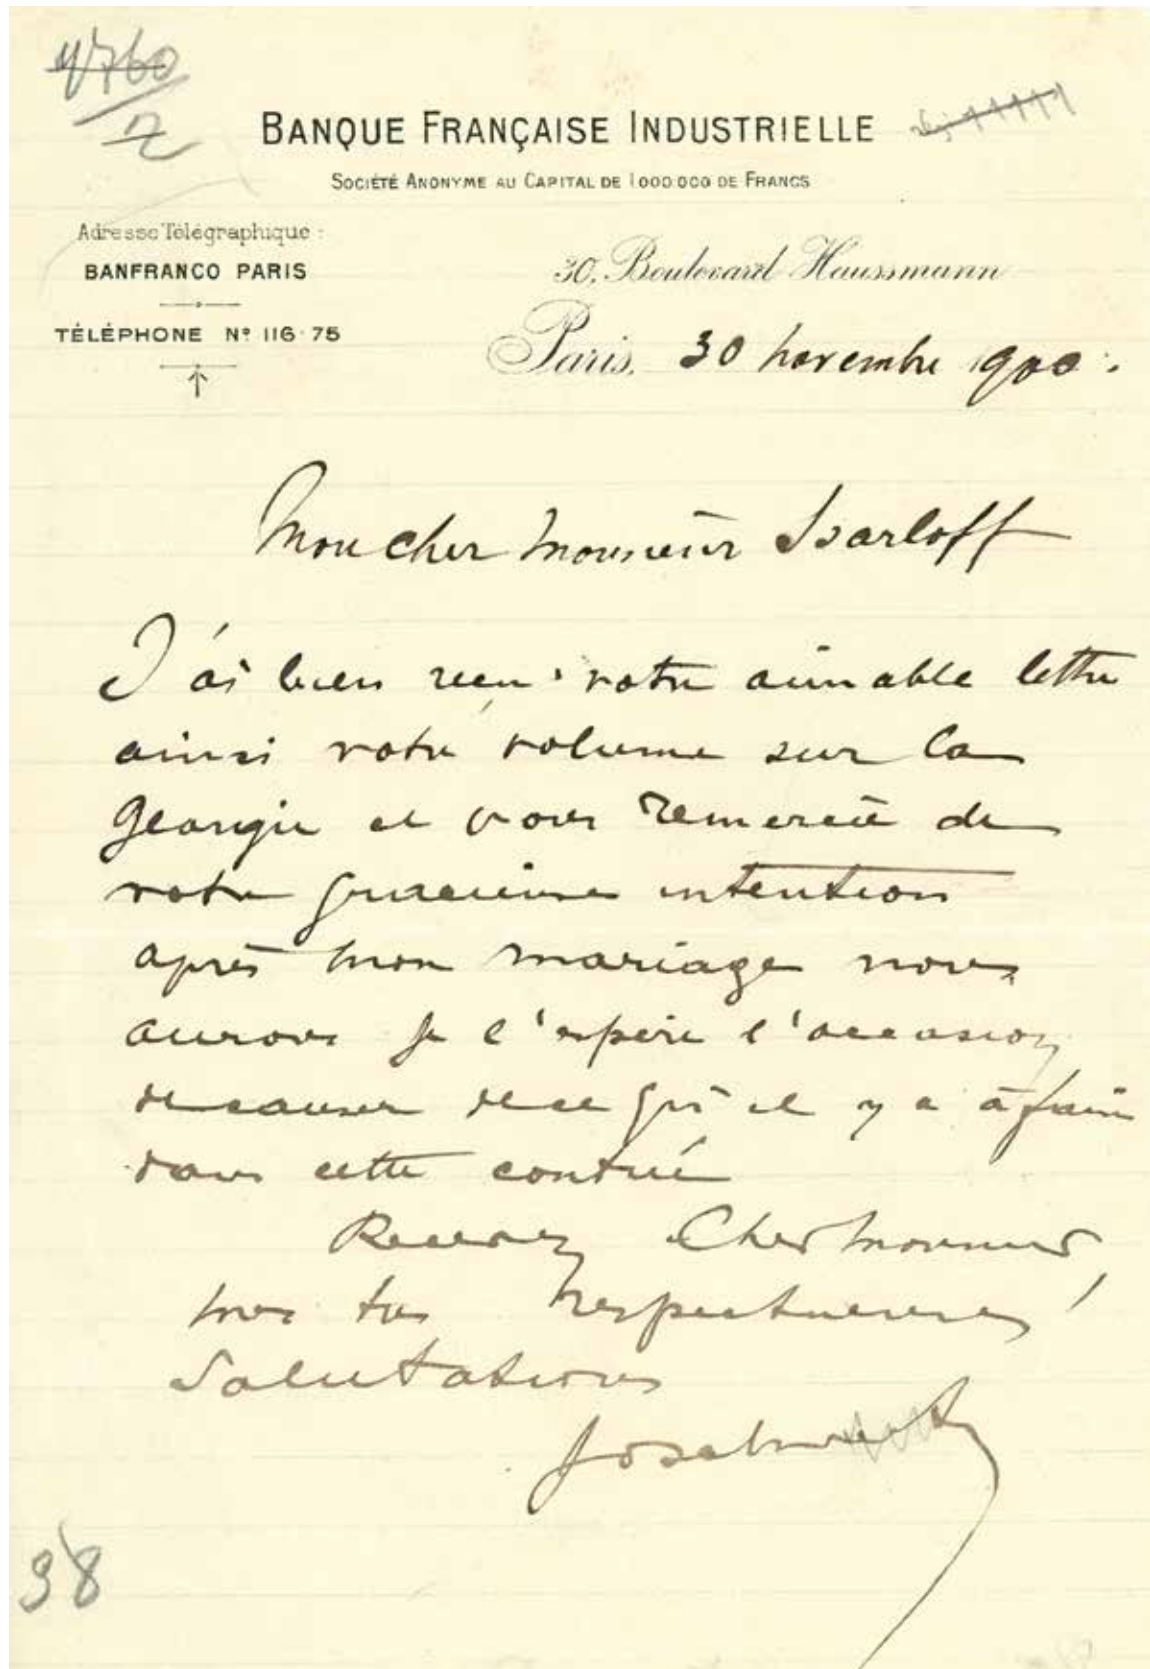 4760
2
BANQUE FRANÇAISE INDUSTRIELLE
SOCIÉTÉ ANONYME AU CAPITAL DE 1000000 DE FRANCS
Adresse Télégraphique :
BANFRANCO PARIS
TÉLÉPHONE Nº 116·75
30, Boulevard Haussmann
Paris, 30 novembre 1900.
Mon cher Monsieur Isarloff
J'ai bien reçu votre aimable lettre
ainsi votre volume sur la
Georgie et vous remercie de
votre gracieuse intention
après mon mariage nous
aurons je l'espère l'occasion
de causer de ce qu'il y a à faire
dans cette contrée
Recevez Cher Monsieur,
mes très respectueuses
Salutations
98